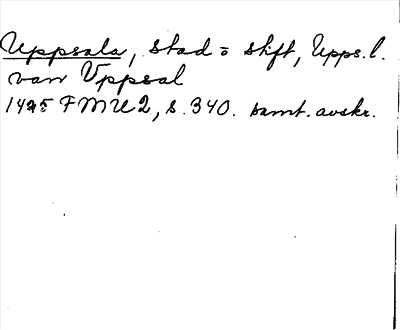 Uppsala, stad o stift, Upps. l.
van Vppsal
1425 FMU 2, s. 340. samt. avskr.